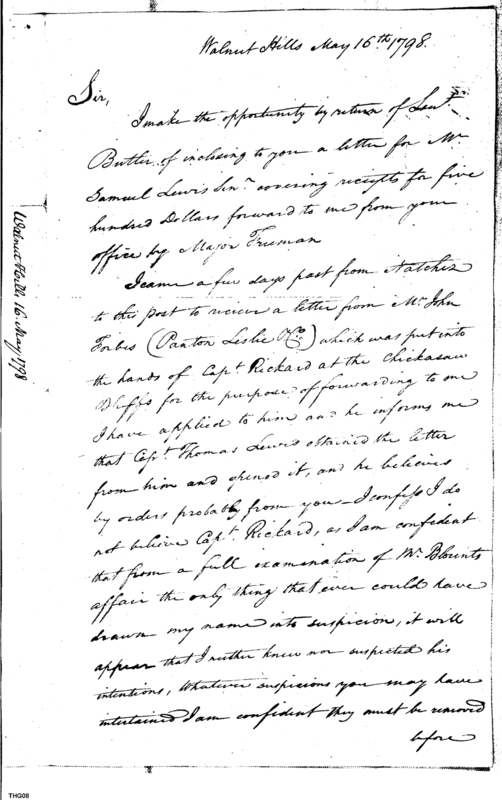 Walnut Hills May 16th 1798.
Sir,
I make the opportunity by return of Lieut.
Butler of inclosing to you a letter for Mr
Samuel Lewis Senr. covering receipts for five
hundred Dollars forward to me from your
office by Major Freeman
I came a few days past from Natchez
to this post to receive a letter from Mr John
Forbes (Panton Leslie & Co) which was put into
the hands of Capt. Rickard at the Chickasaw
Bluffs for the purpose of forwarding to me
I have applied to him and he informs me
that Capt. Thomas Lewis obtained the letter
from him and opened it, and he believes
by orders probably from you – I confess I do
not believe Capt. Rickard, as I am confident
that from a full examination of Mr. Blounts
affair the only thing that ever could have
drawn my name into suspicion, it will
appear that I neither knew nor suspected his
intentions, Whatever suspicions you may have
entertained I am confident they must be removed
before
Walnut Hills 16. May, 1798
THG08